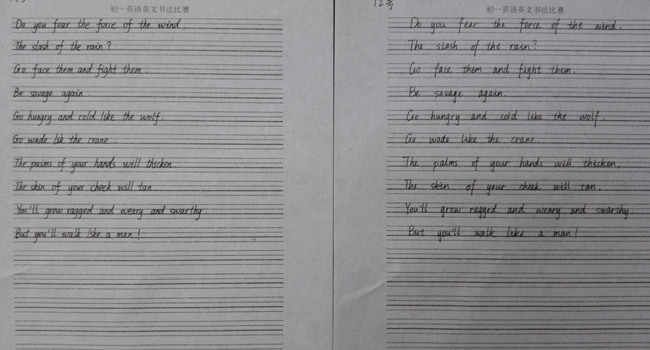 初一英语英文书法比赛
Do you fear the force of the wind
The slash of the rain?
Go face them and fight them.
Be savage again.
Go hungry and cold like the wolf.
Go wade lik the crane.
The palms of your hands will thicken
The skin of your cheek will tan.
You'll grow ragged and weary and swarthy.
But you'll walk like a man!
12号
初一英语英文书法比赛
Do you fear the force of the wind.
The slash of the rain?
Go face them and fight them.
Be savage again.
Go hungry and cold like the wolf.
Go wade like the crane.
The palms of your hands will thicken.
The skin of your cheek will tan.
You'll grow ragged and weary and swarthy.
But you'll walk like a man!